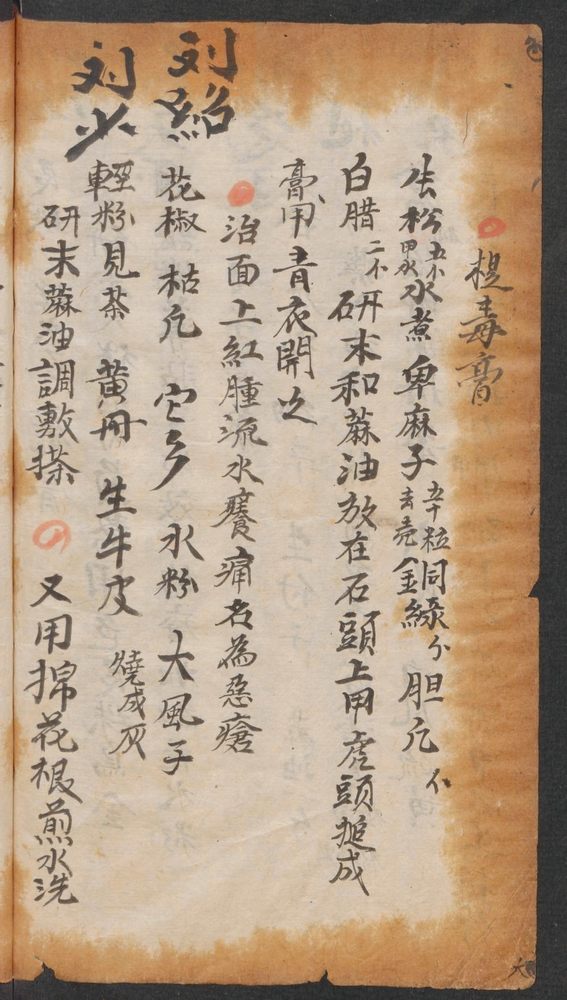 提毒膏
生松五小甲水水煮 卑麻子五十粒去壳 同綠 胆凡
白腊二 研末和蔴油放在石頭上用虎頭搥成
膏用青衣開之
治面上紅腫流水癢痛名為惡瘡
花椒 枯凡 水粉 大風子
輕粉見茶 黄丹 生牛皮燒成灰
研末蔴油調敷搽 又用棉花根煎水洗
刘紹
刘